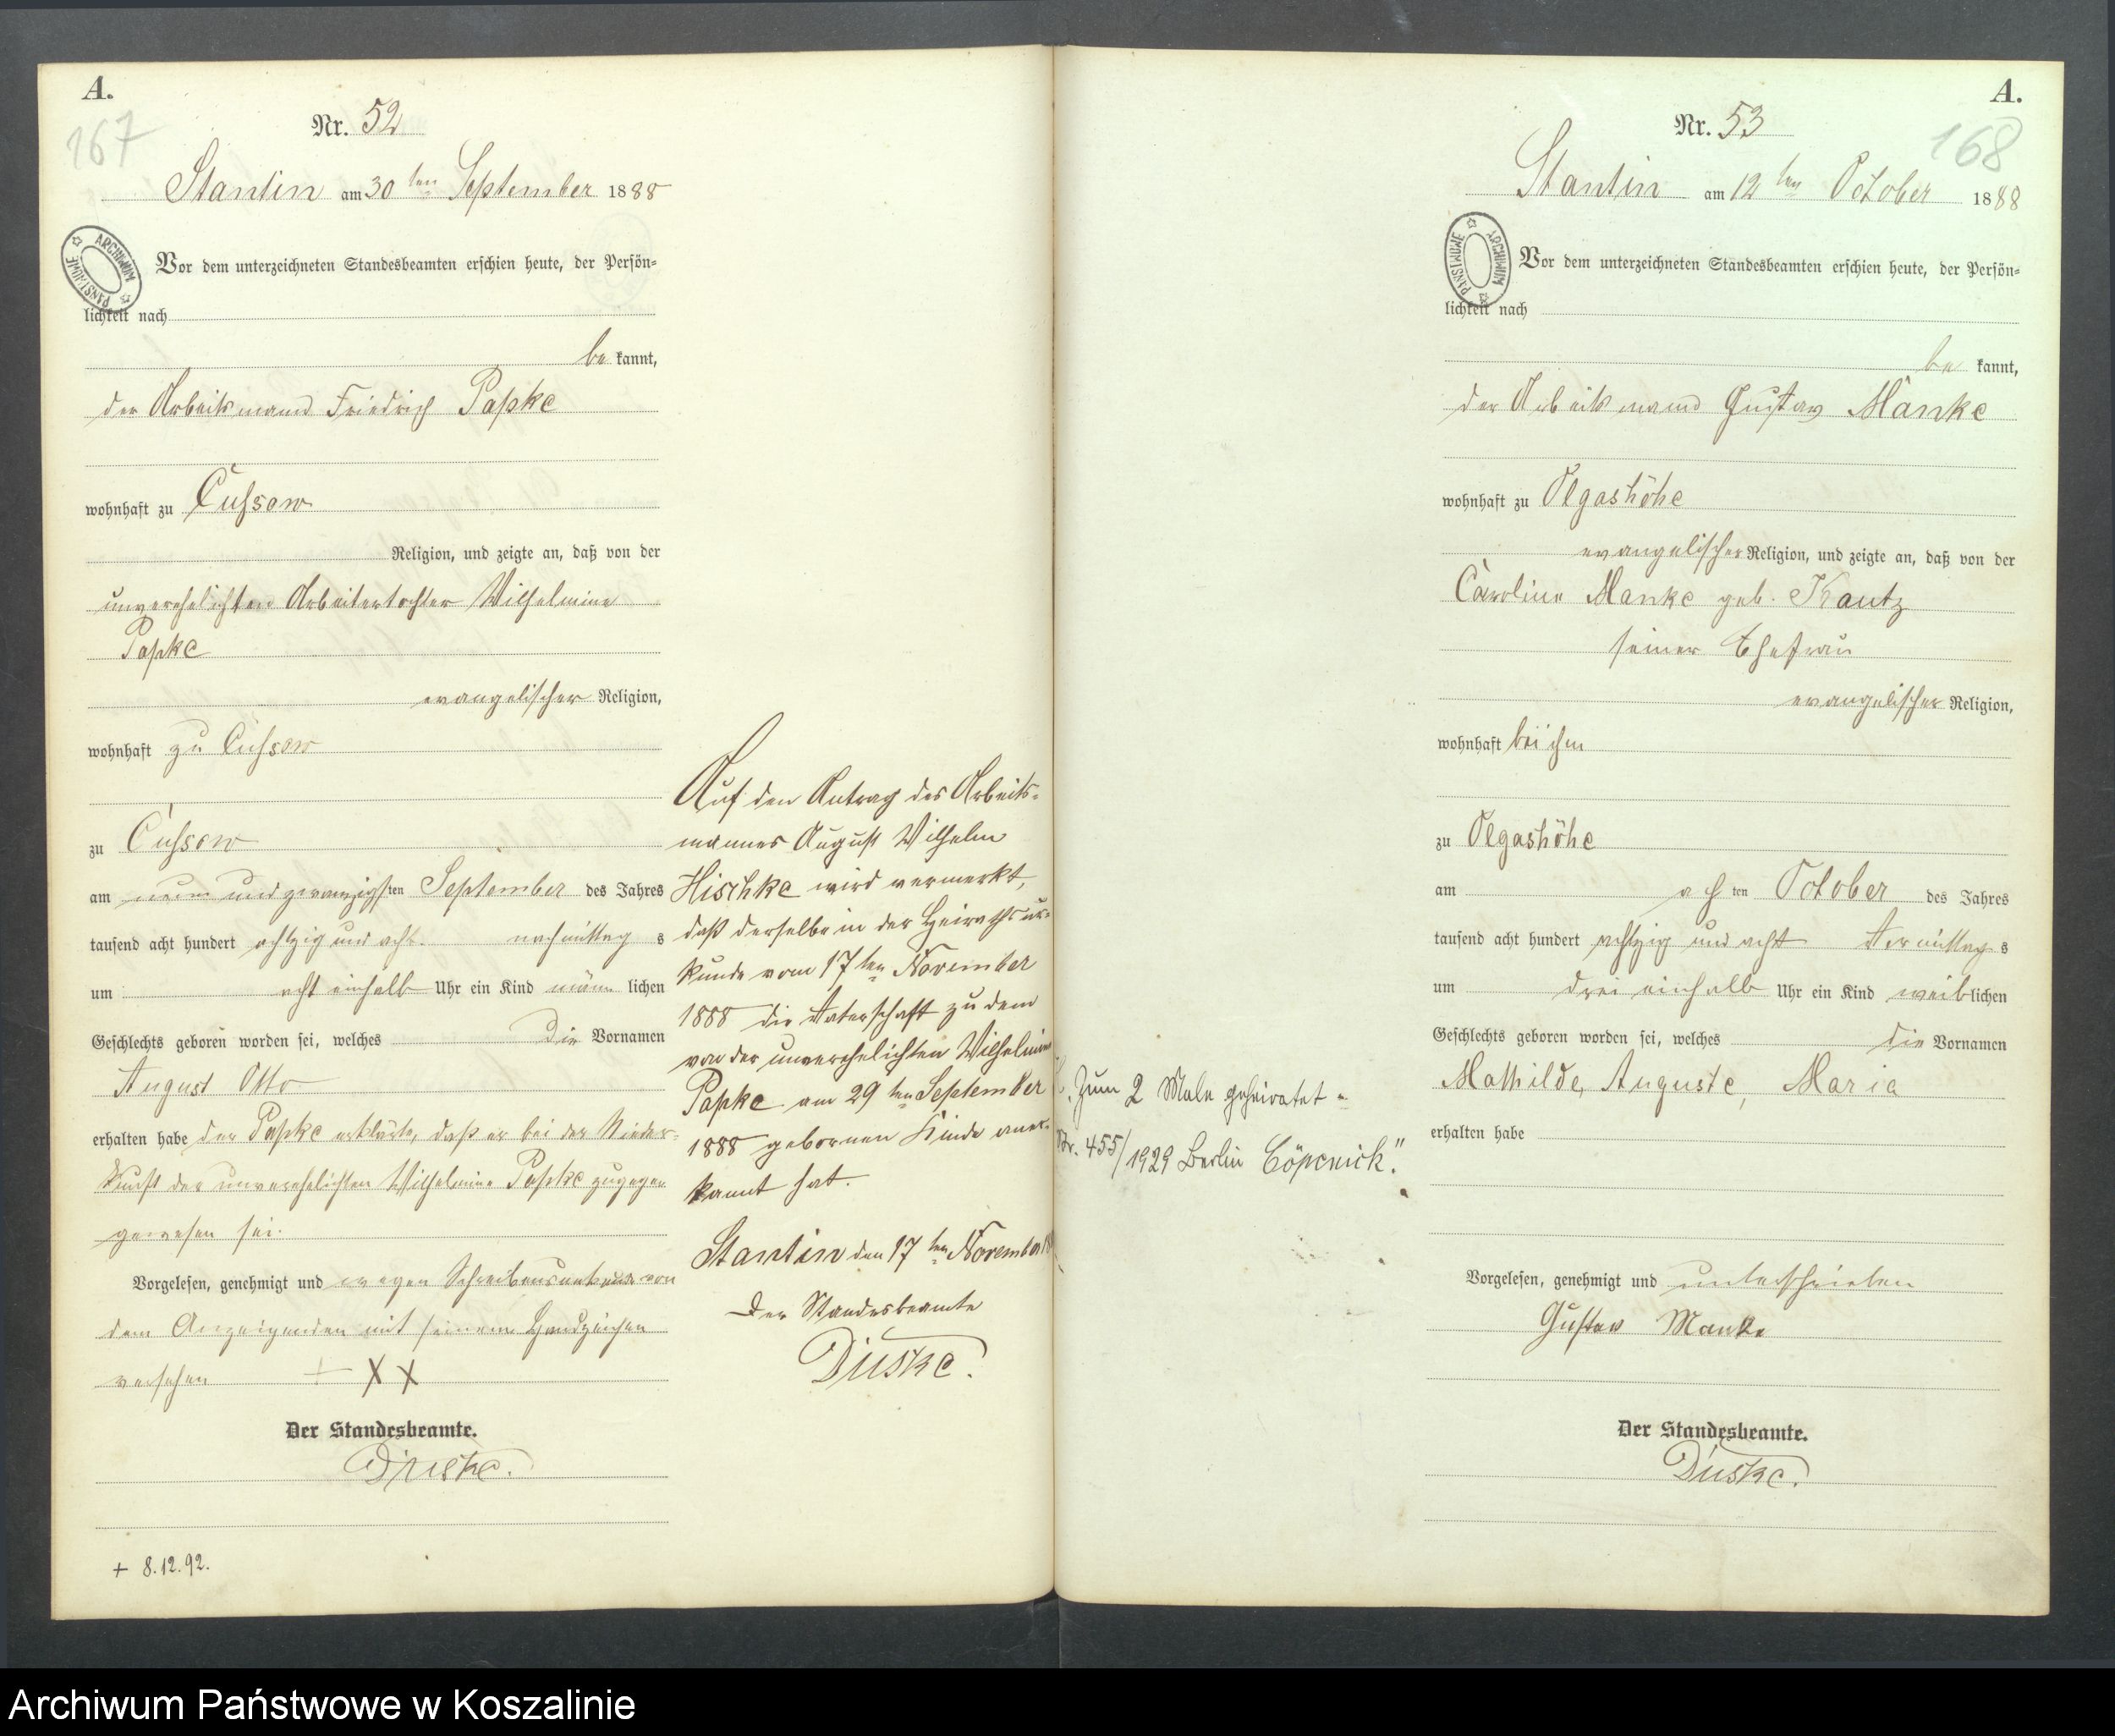 A.
167
Nr. 52
Stantin am 30ten September 1888
ARCHIWUM PAŃSTWOWE
Vor dem unterzeichneten Standesbeamten erschien heute, der Persön=
lichkeit nach
be kannt,
der Arbeitsmann Friedrich Papke
wohnhaft zu Cussow
Religion, und zeigte an, daß von der
unverehelichten Arbeitertochter Wilhelmine
Papke
evangelischer Religion,
wohnhaft zu Cussow
zu Cussow
am neun und zwanzigsten September des Jahres
tausend acht hundert achtzig und acht nachmittag s
um acht einhalb Uhr ein Kind männ lichen
Geschlechts geboren worden sei, welches die Vornamen
August Otto
erhalten habe der Papke erklärte, daß er bei der Nieder=
kunft der unverehelichten Wilhelmine Papke zugegen
gewesen sei.
Vorgelesen, genehmigt und wegen von
dem Anzeigenden mit seinem Handzeichen
versehen + X X
Der Standesbeamte.
Duske.
+ 8.12.92.
Auf den Antrag des Arbeits=
mannes August Wilhelm
Hischke wird vermerkt,
daß derselbe in der Heirathsur=
kunde vom 17ten November
1888 die Vaterschaft zu dem
von der unverehelichten Wilhelmine
Papke am 29ten September
1888 gebornen Kinde aner=
kannt hat.
Stantin den 17ten November
Der Standesbeamte
Duske.
A.
168
Nr. 53
Stantin am 12ten October 1888
ARCHIWUM PAŃSTWOWE
Vor dem unterzeichneten Standesbeamten erschien heute, der Persön=
lichkeit nach
be kannt,
der Arbeitsmann Gustav Manke
wohnhaft zu Olgashöhe
evangelischer Religion, und zeigte an, daß von der
Caroline Manke geb. Kautz
seiner Ehefrau
evangelischer Religion,
wohnhaft bei ihm
zu Olgashöhe
am achten October des Jahres
tausend acht hundert achtzig und acht Vormittag s
um drei einhalb Uhr ein Kind weiblichen
Geschlechts geboren worden sei, welches die Vornamen
Mathilde, Auguste, Maria
erhalten habe
Vorgelesen, genehmigt und unterschrieben
Gustav Manke
Der Standesbeamte.
Duske.
Zum 2 Male geheiratet
Nr. 455/1929 Berlin Cöpenick."
Archiwum Państwowe w Koszalinie